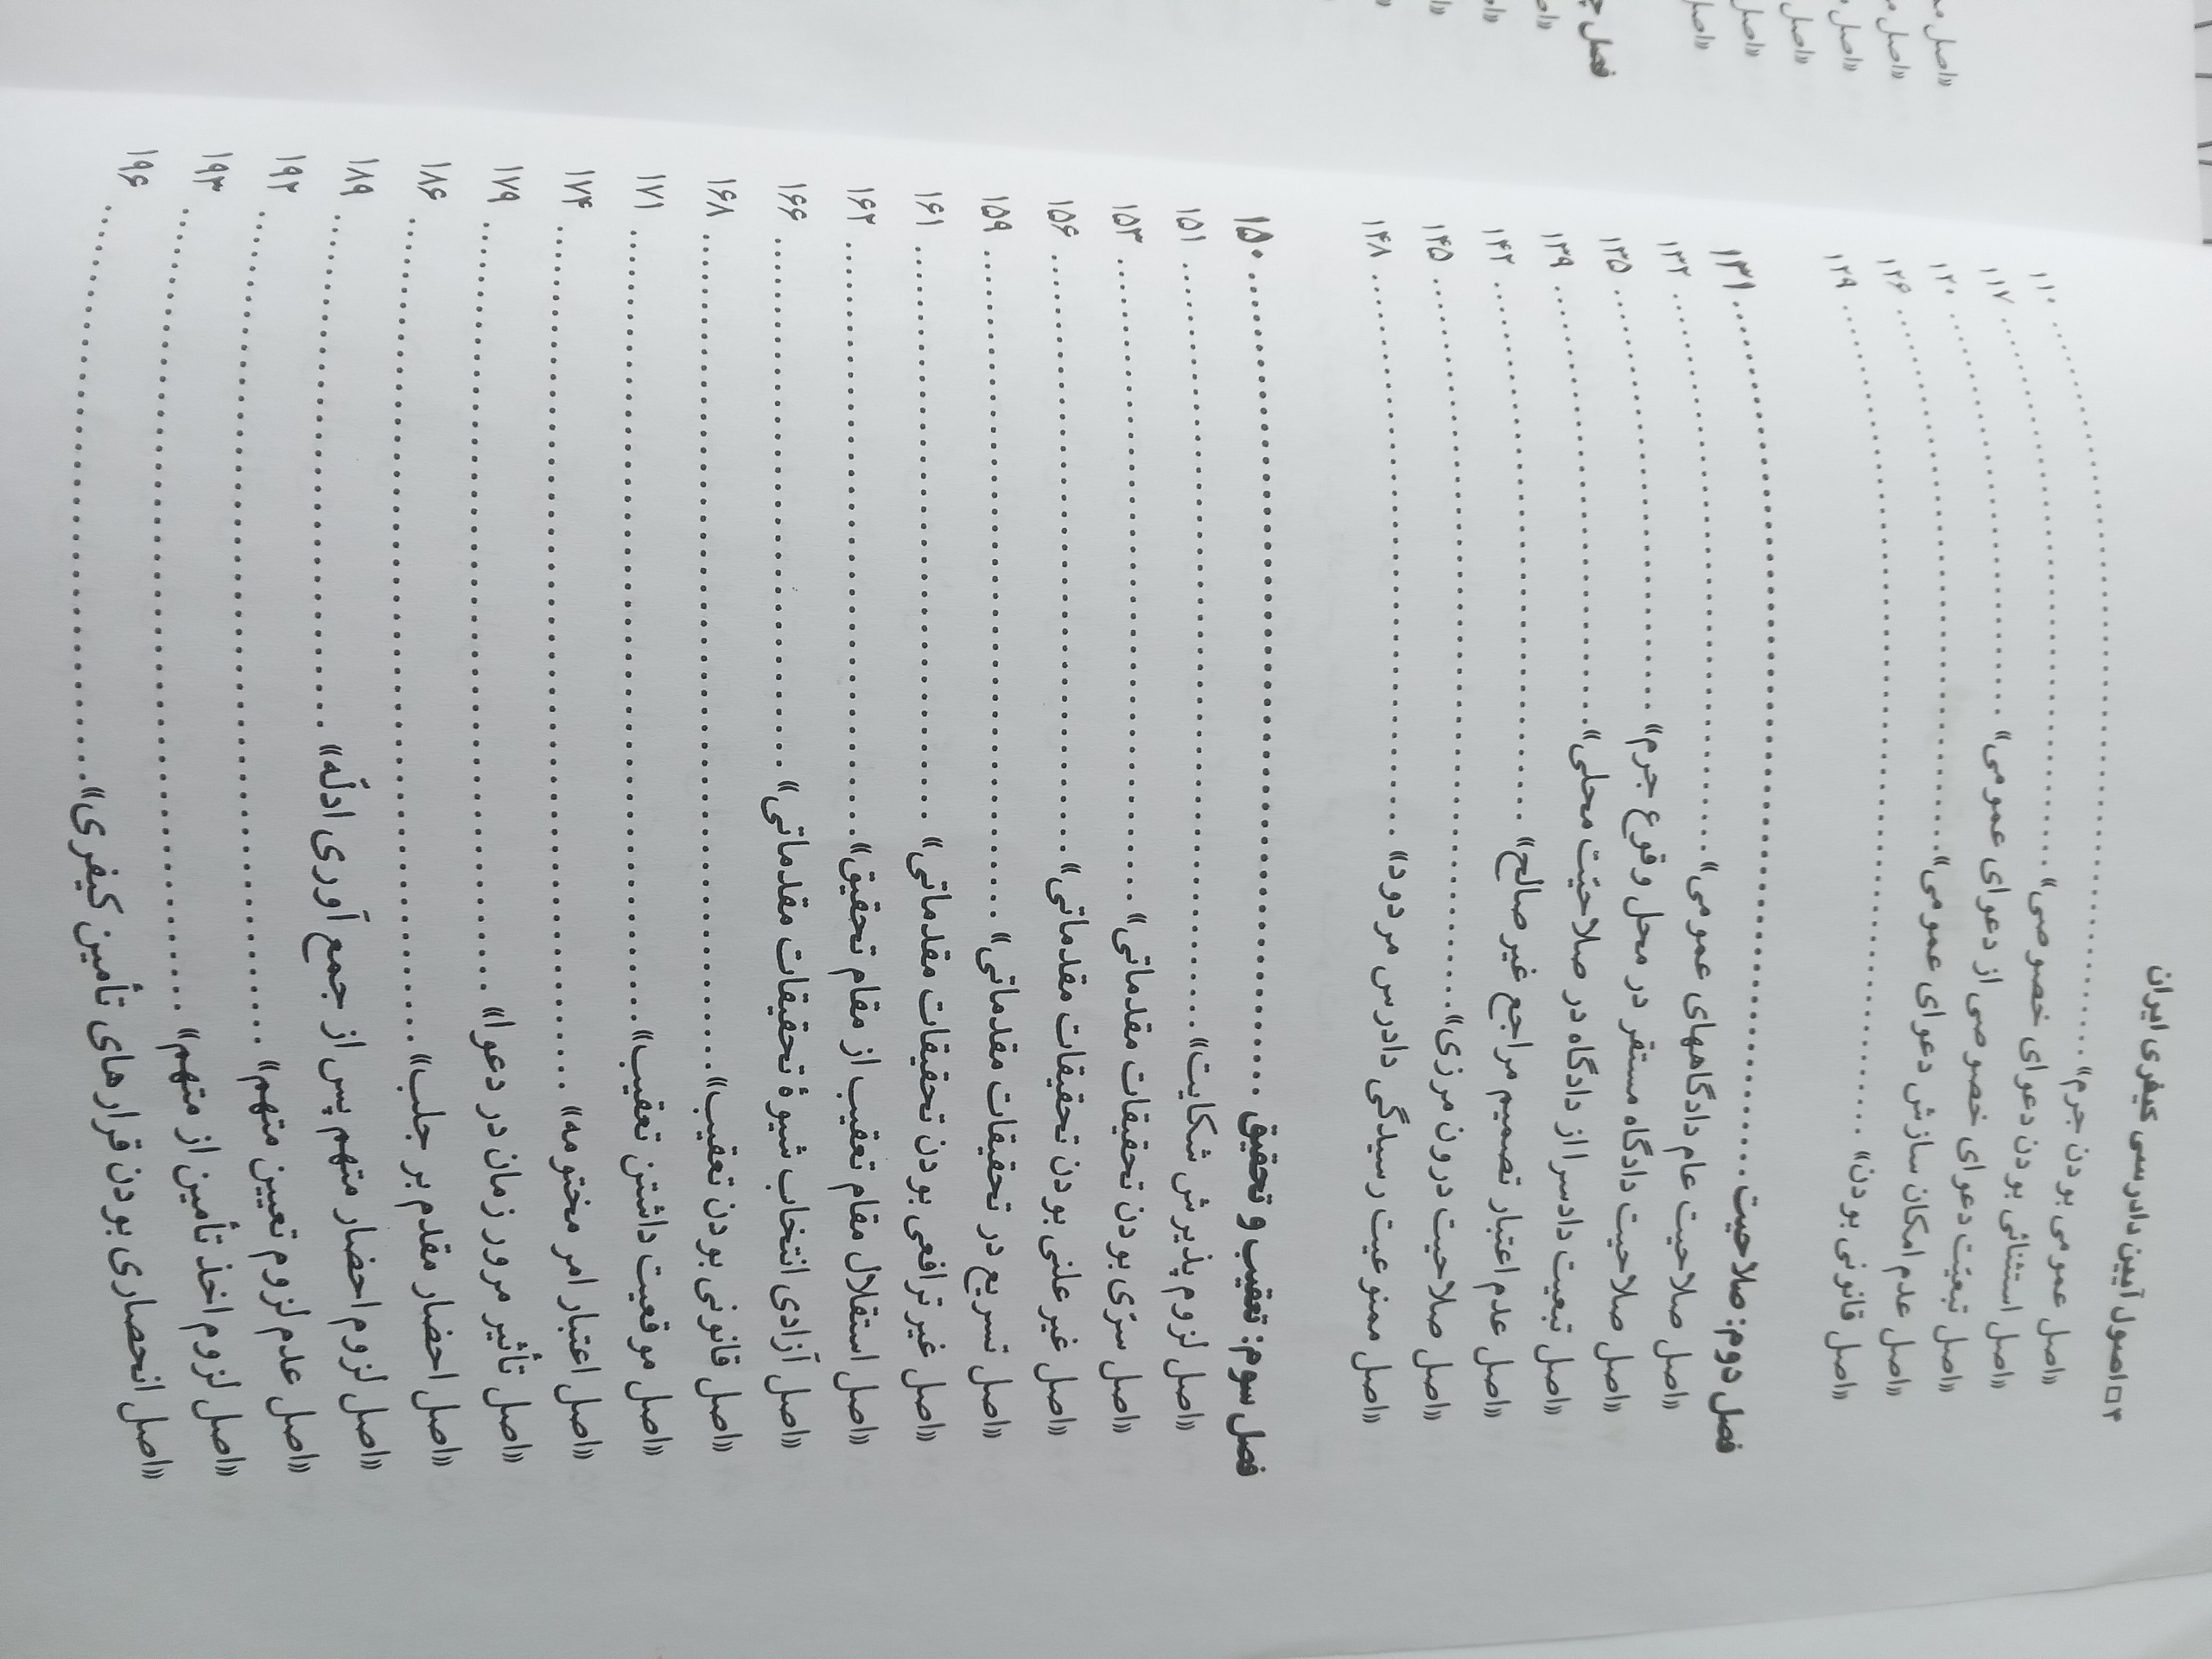 ۴ □ اصول آیین دادرسی کیفری ایران
«اصل عمومی بودن جرم» ۱۱۰
«اصل استثنائی بودن دعوای خصوصی» ۱۱۷
«اصل تبعیّت دعوای خصوصی از دعوای عمومی» ۱۲۰
«اصل عدم امکان سازش دعوای عمومی» ۱۲۶
«اصل قانونی بودن» ۱۲۹
فصل دوم: صلاحیت ۱۳۱
«اصل صلاحیت عام دادگاههای عمومی» ۱۳۲
«اصل صلاحیت دادگاه مستقر در محل وقوع جرم» ۱۳۵
«اصل تبعیت دادسرا از دادگاه در صلاحیّت محلی» ۱۳۹
«اصل عدم اعتبار تصمیم مراجع غیر صالح» ۱۴۲
«اصل صلاحیت درون مرزی» ۱۴۵
«اصل ممنوعیت رسیدگی دادرس مردود» ۱۴۸
فصل سوم: تعقیب و تحقیق ۱۵۰
«اصل لزوم پذیرش شکایت» ۱۵۱
«اصل سرّی بودن تحقیقات مقدماتی» ۱۵۳
«اصل غیر علنی بودن تحقیقات مقدماتی» ۱۵۶
«اصل تسریع در تحقیقات مقدماتی» ۱۵۹
«اصل غیر ترافعی بودن تحقیقات مقدماتی» ۱۶۱
«اصل استقلال مقام تعقیب از مقام تحقیق» ۱۶۲
«اصل آزادی انتخاب شیوهٔ تحقیقات مقدماتی» ۱۶۶
«اصل قانونی بودن تعقیب» ۱۶۸
«اصل موقعیت داشتن تعقیب» ۱۷۱
«اصل اعتبار امر مختومه» ۱۷۴
«اصل تأثیر مرور زمان در دعوا» ۱۷۹
«اصل احضار مقدم بر جلب» ۱۸۶
«اصل لزوم احضار متهم پس از جمع آوری ادلّه» ۱۸۹
«اصل عدم لزوم تعیین متهم» ۱۹۲
«اصل لزوم اخذ تأمین از متهم» ۱۹۳
«اصل انحصاری بودن قرارهای تأمین کیفری» ۱۹۶